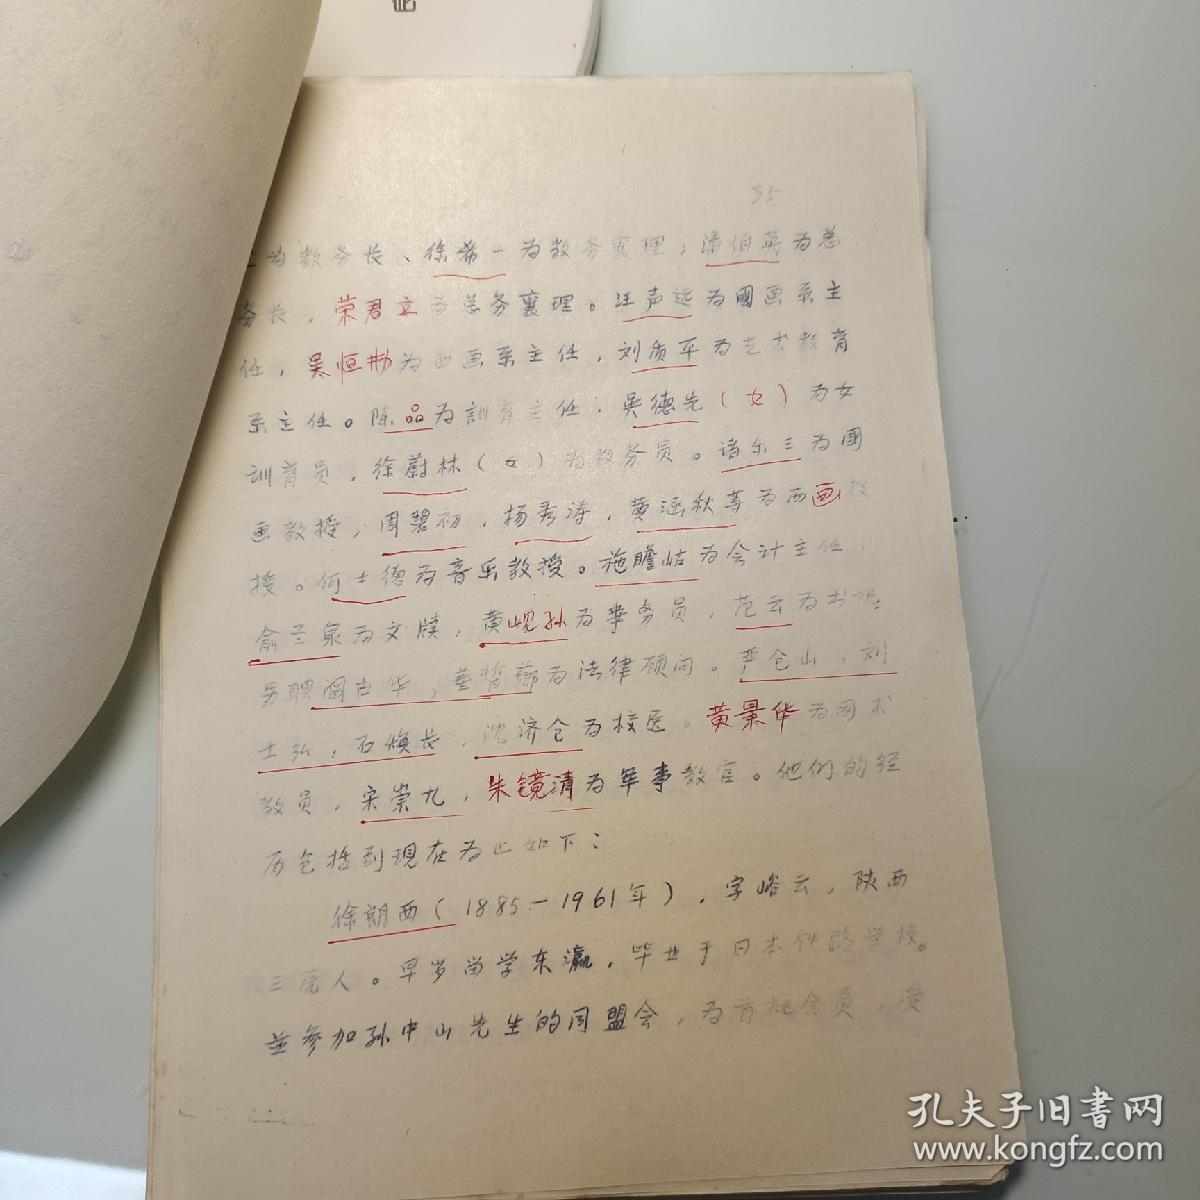 35
为教务长、徐希一为教务襄理；潘伯英为总
务长，荣君立为总务襄理。汪声远为國画系主
任，吴恒勤为西画系主任，刘质平为艺术教育
系主任。陈品为訓育主任，吴德先（女）为女
訓育员，徐蔚林（女）为教务员。诸乐三为國
画教授，周碧初，杨秀涛，黄涵秋等为西画教
授。何士德为音乐教授。施瞻岵为会计主任，
俞兰泉为文牍，黄岘孙为事务员，范云为书记
另聘阎古华，董哲芗为法律顾问。严仓山，刘
士弘，石焕长，沈济仓为校医。黄景华为国术
教员，宋崇九，朱镜清为军事教官。他们的经
历包括到現在为止如下：
徐朗西（1885—1961年），字峪云，陕西
三原人。早岁留学东瀛，毕业于日本铁路学校。
並参加孙中山先生的同盟会，为首批会员，受
孔夫子旧书网
www.kongfz.com